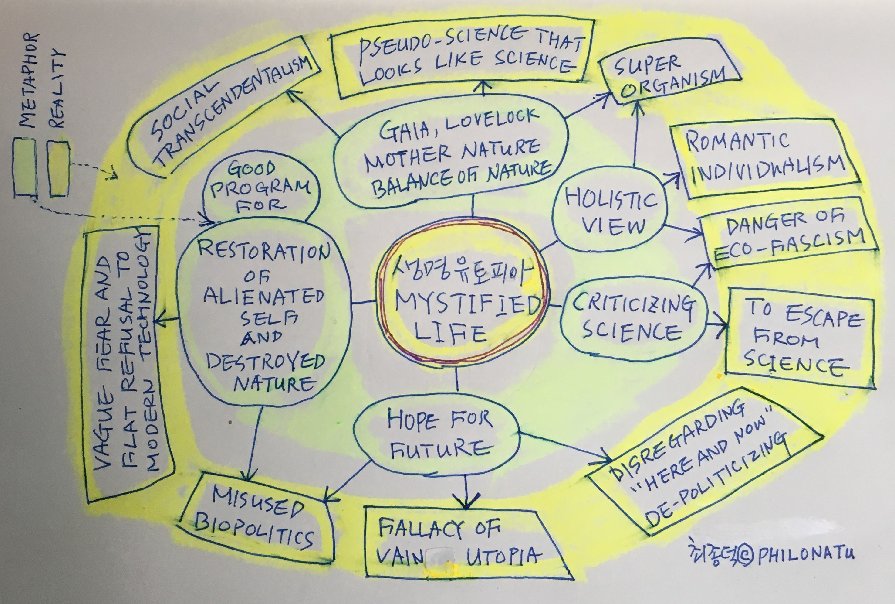 METAPHOR
REALITY
SOCIAL
TRANSCENDENTALISM
PSEUDO-SCIENCE THAT
LOOKS LIKE SCIENCE
SUPER
ORGANISM
GAIA, LOVELOCK
MOTHER NATURE
BALANCE OF NATURE
ROMANTIC
INDIVIDUALISM
GOOD
PROGRAM
FOR
HOLISTIC
VIEW
DANGER OF
ECO-FASCISM
RESTORATION
OF
ALIENATED
SELF
AND
DESTROYED
NATURE
생명유토피아
MYSTIFIED
LIFE
CRITICIZING
SCIENCE
TO ESCAPE
FROM
SCIENCE
VAGUE FEAR AND
FLAT REFUSAL TO
MODERN TECHNOLOGY
HOPE FOR
FUTURE
DISREGARDING
"HERE AND NOW"
DE-POLITICIZING
MISUSED
BIOPOLITICS
FALLACY OF
VAIN UTOPIA
최종덕©PHILONATU